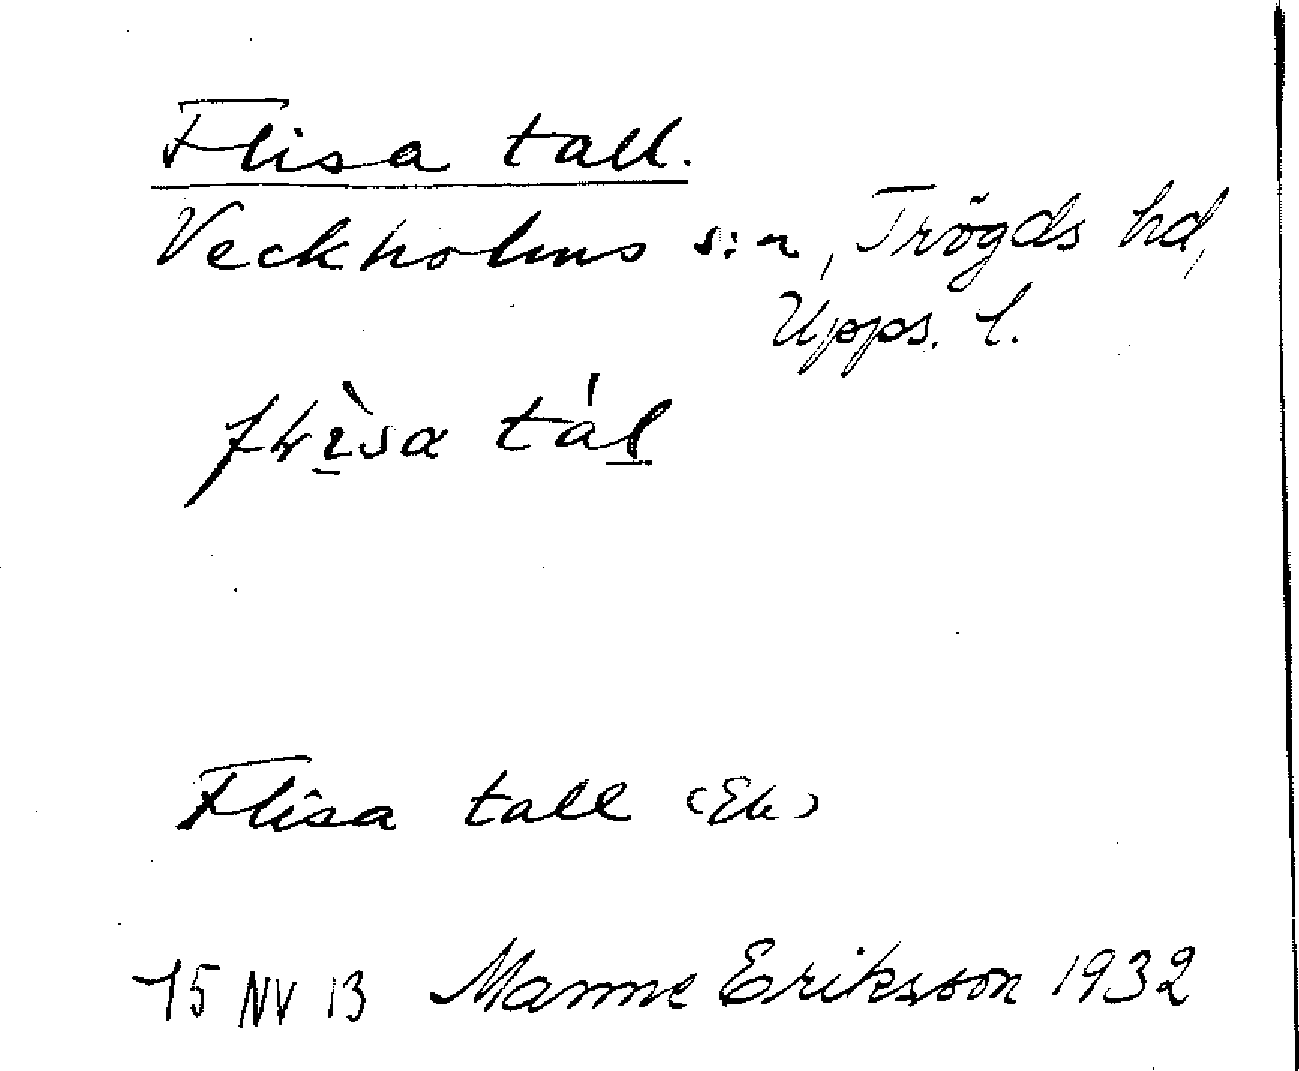 Flisa tall.
Veckholms s:n, Trögds hd,
Upps. l.
tál
Flisa tall (Ek)
15 NV 13 Manne Eriksson 1932